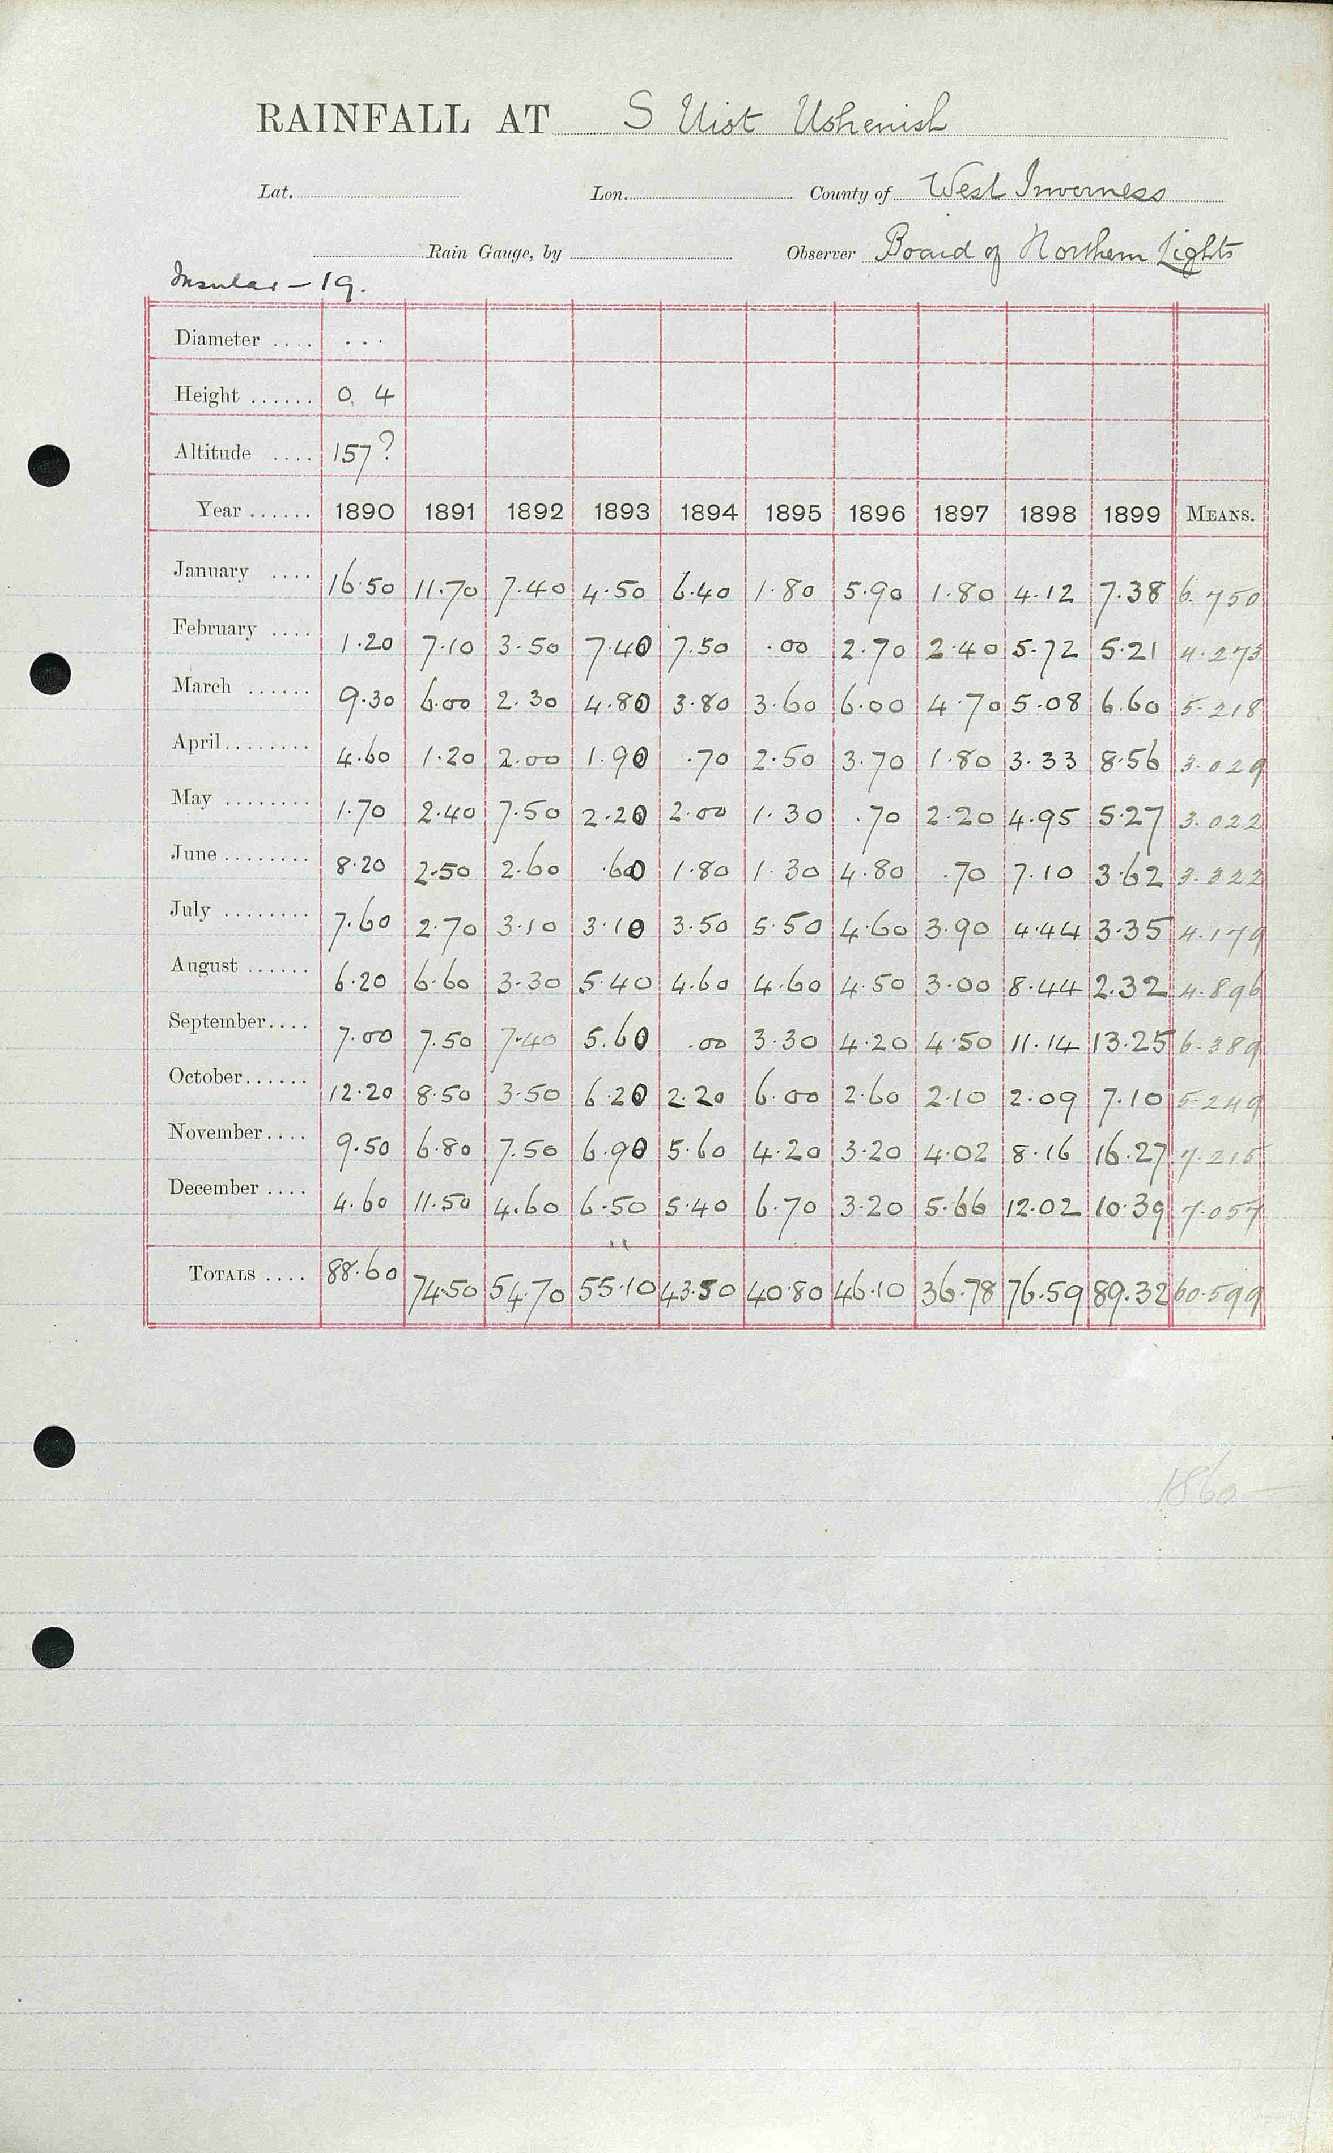 RAINFALL AT S Uist Ushenish
Lat. Lon. County of West Inverness
Rain Gauge, by Observer Board of Northern Lights
Insular - 19.
Diameter .... ...
Height ...... 0. 4
Altitude .... 157?
Year ...... 1890 1891 1892 1893 1894 1895 1896 1897 1898 1899 MEANS.
January .... 16.50 11.70 7.40 4.50 6.40 1.80 5.90 1.80 4.12 7.38 6.750
February .... 1.20 7.10 3.50 7.40 7.50 .00 2.70 2.40 5.72 5.21 4.273
March ...... 9.30 6.00 2.30 4.80 3.80 3.60 6.00 4.70 5.08 6.60 5.218
April........ 4.60 1.20 2.00 1.90 .70 2.50 3.70 1.80 3.33 8.56 3.029
May ........ 1.70 2.40 7.50 2.20 2.00 1.30 .70 2.20 4.95 5.27 3.022
June ........ 8.20 2.50 2.60 .60 1.80 1.30 4.80 .70 7.10 3.62 3.322
July ........ 7.60 2.70 3.10 3.10 3.50 5.50 4.60 3.90 4.44 3.35 4.179
August ...... 6.20 6.60 3.30 5.40 4.60 4.60 4.50 3.00 8.44 2.32 4.896
September.... 7.00 7.50 7.40 5.60 .00 3.30 4.20 4.50 11.14 13.25 6.389
October...... 12.20 8.50 3.50 6.20 2.20 6.00 2.60 2.10 2.09 7.10 5.249
November.... 9.50 6.80 7.50 6.90 5.60 4.20 3.20 4.02 8.16 16.27 7.215
December .... 4.60 11.50 4.60 6.50 5.40 6.70 3.20 5.66 12.02 10.39 7.057
TOTALS .... 88.60 74.50 54.70 55.10 43.50 40.80 46.10 36.78 76.59 89.32 60.599
1860